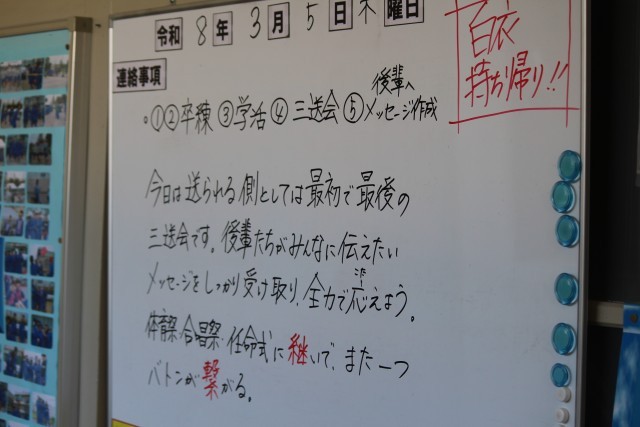 令和 8 年 3 月 5 日 木 曜日
白衣
持ち帰り!!
連絡事項
後輩へ
。①② 卒練 ③学活 ④ 三送会 ⑤メッセージ作成
今日は送られる側としては最初で最後の
三送会です。後輩たちがみんなに伝えたい
メッセージをしっかり受け取り、全力で応えよう。
こた
体育祭・合唱祭・任命式に継いで、また一つ
バトンが繋がる。